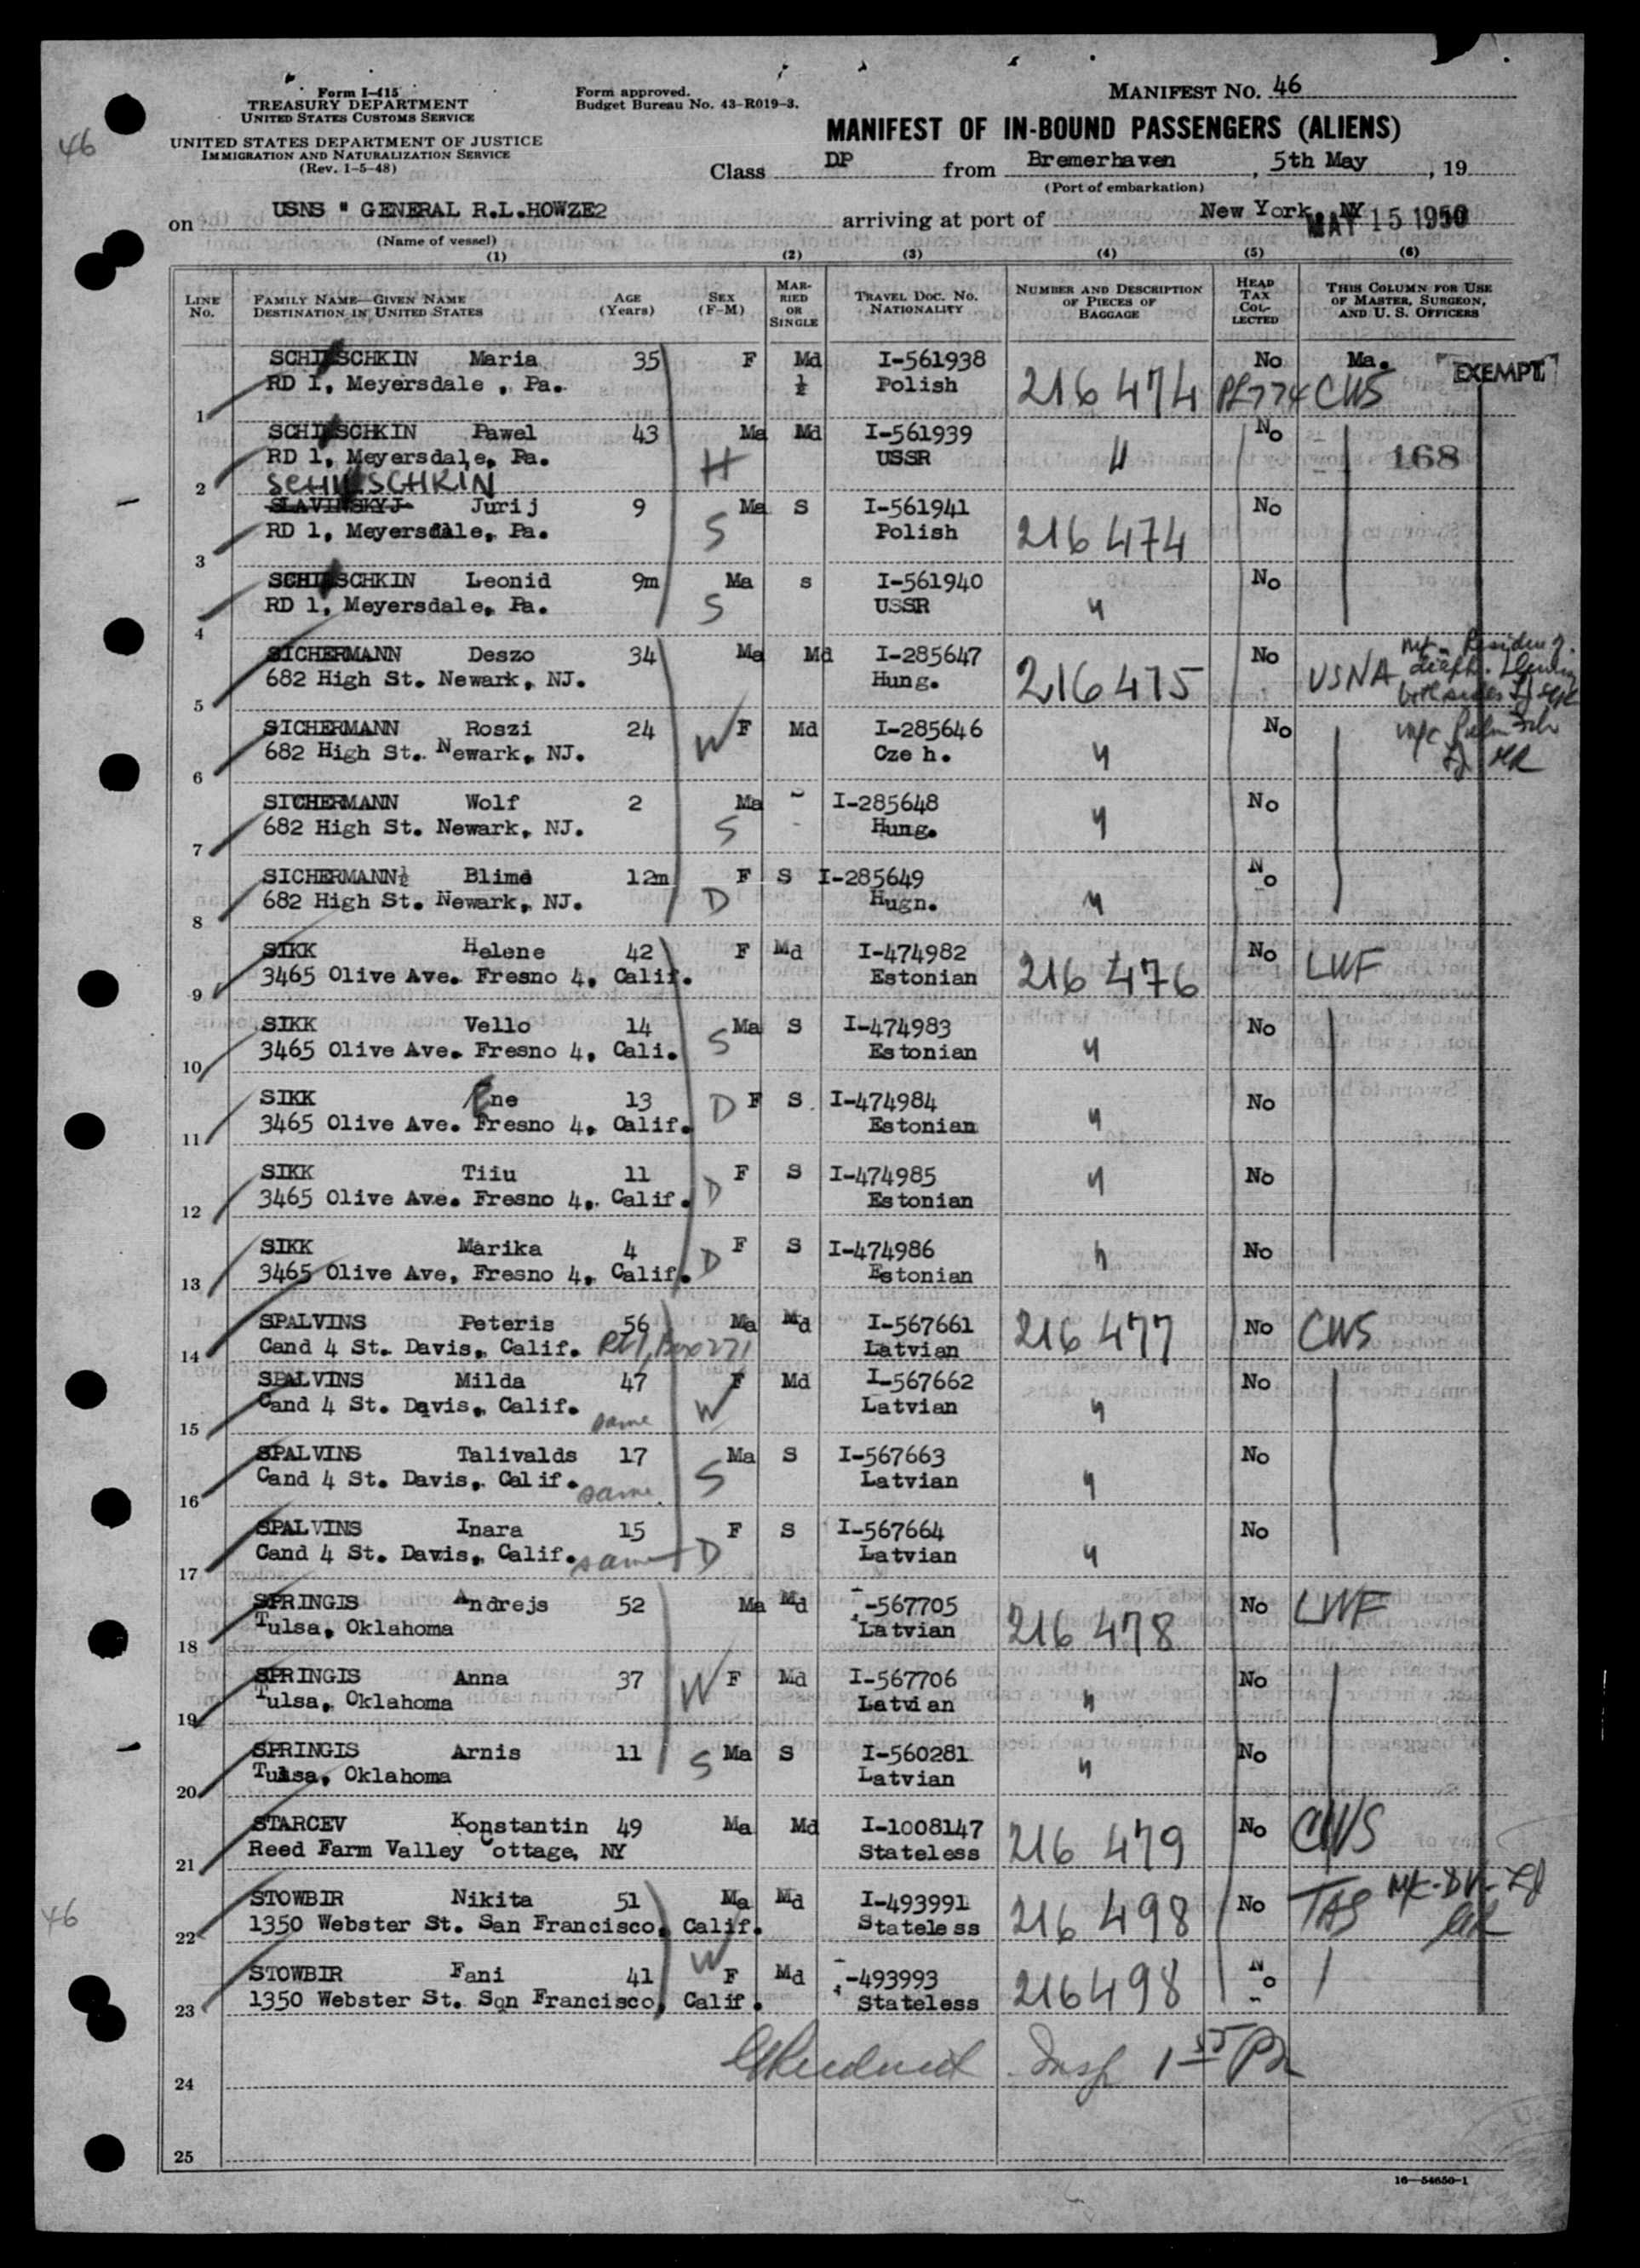 46
Form I-415
TREASURY DEPARTMENT
UNITED STATES CUSTOMS SERVICE
UNITED STATES DEPARTMENT OF JUSTICE
IMMIGRATION AND NATURALIZATION SERVICE
(Rev. 1-5-48)
Form approved.
Budget Bureau No. 43-R019-3.
MANIFEST NO. 46
MANIFEST OF IN-BOUND PASSENGERS (ALIENS)
Class DP from Bremerhaven, 5th May, 19
(Port of embarkation)
on USNS " GENERAL R.L.HOWZE2 arriving at port of New York, NY MAY 15 1950
(Name of vessel)
(1) (2) (3) (4) (5) (6)
LINE No. FAMILY NAME—GIVEN NAME DESTINATION IN UNITED STATES AGE (Years) SEX (F-M) MARRIED OR SINGLE TRAVEL DOC. NO. NATIONALITY NUMBER AND DESCRIPTION OF PIECES OF BAGGAGE HEAD TAX COLLECTED THIS COLUMN FOR USE OF MASTER, SURGEON, AND U. S. OFFICERS
SCHI SCHKIN Maria 35 F Md I-561938 No Ma. EXEMPT
1 RD 1, Meyersdale , Pa. ½ Polish 216 474 CWS
SCHI SCHKIN Pawel 43 Ma Md I-561939 No
2 RD 1, Meyersdale, Pa. H USSR " 168
SCHI SCHKIN
SLAVINSKYJ Jurij 9 Ma S I-561941 No
3 RD 1, Meyersdale, Pa. S Polish 216 474
SCHI SCHKIN Leonid 9m Ma s I-561940 No
4 RD 1, Meyersdale, Pa. S USSR "
SICHERMANN Deszo 34 Ma Md I-285647 No
5 682 High St. Newark, NJ. Hung. 216 475 USNA
SICHERMANN Roszi 24 F Md I-285646 No
6 682 High St. Newark, NJ. W Czeh. "
SICHERMANN Wolf 2 Ma - I-285648 No
7 682 High St. Newark, NJ. S - Hung. "
SICHERMANN½ Blima 12m F S I-285649 No
8 682 High St. Newark, NJ. D Hugn. "
SIKK Helene 42 F Md I-474982 No
9 3465 Olive Ave. Fresno 4, Calif. Estonian 216 476 LWF
SIKK Vello 14 Ma S I-474983 No
10 3465 Olive Ave. Fresno 4, Cali. S Estonian "
SIKK Ene 13 D F S. I-474984 No
11 3465 Olive Ave. Fresno 4, Calif. Estonian "
SIKK Tiiu 11 F S I-474985 No
12 3465 Olive Ave. Fresno 4, Calif. D Estonian "
SIKK Marika 4 F S I-474986 No
13 3465 Olive Ave, Fresno 4, Calif. D Estonian "
SPALVINS Peteris 56 Ma Md I-567661 No
14 Cand 4 St. Davis, Calif. Rt 1, Box 271 Latvian 216 477 CWS
SPALVINS Milda 47 F Md I-567662 No
15 Cand 4 St. Davis, Calif. same W Latvian "
SPALVINS Talivalds 17 Ma S I-567663 No
16 Cand 4 St. Davis, Calif. same S Latvian "
SPALVINS Inara 15 F S I-567664 No
17 Cand 4 St. Davis, Calif. same D Latvian "
SPRINGIS Andrejs 52 Ma Md -567705 No
18 Tulsa, Oklahoma Latvian 216 478 LWF
SPRINGIS Anna 37 F Md I-567706 No
19 Tulsa, Oklahoma W Latvian "
SPRINGIS Arnis 11 Ma S I-560281 No
20 Tulsa, Oklahoma S Latvian "
STARCEV Konstantin 49 Ma Md I-1008147 No
21 Reed Farm Valley Cottage, NY Stateless 216 479 CWS
STOWBIR Nikita 51 Ma Md I-493991 No
22 1350 Webster St. San Francisco, Calif. Stateless 216 498 TAS
46
STOWBIR Fani 41 W F Md -493993 No
23 1350 Webster St. Son Francisco, Calif. Stateless 216498
24 Insp
25
16—54650-1